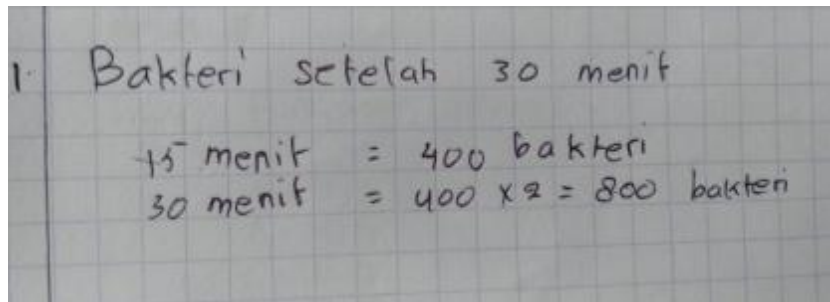 1. Bakteri setelah 30 menit
15 menit = 400 bakteri
30 menit = 400 x 2 = 800 bakteri